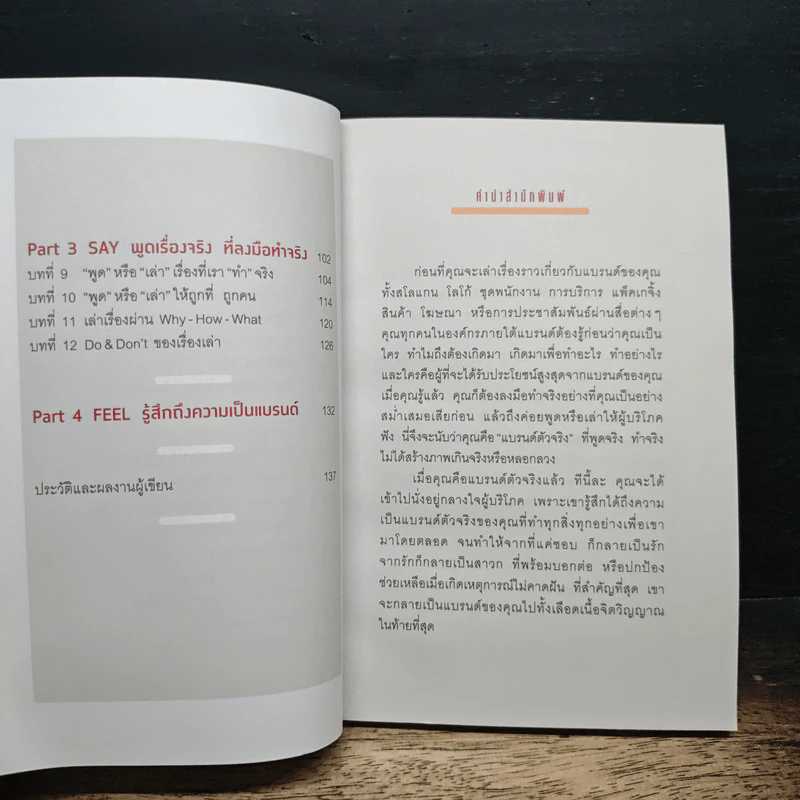 Part 3 SAY พูดเรื่องจริง ที่ลงมือทำจริง 102
บทที่ 9 "พูด" หรือ "เล่า" เรื่องที่เรา "ทำ" จริง 104
บทที่ 10 "พูด" หรือ "เล่า" ให้ถูกที่ ถูกคน 114
บทที่ 11 เล่าเรื่องผ่าน Why - How - What 120
บทที่ 12 Do & Don't ของเรื่องเล่า 126
Part 4 FEEL รู้สึกถึงความเป็นแบรนด์ 132
ประวัติและผลงานผู้เขียน 137
คำนำสำนักพิมพ์
ก่อนที่คุณจะเล่าเรื่องราวเกี่ยวกับแบรนด์ของคุณ
ทั้งสโลแกน โลโก้ ชุดพนักงาน การบริการ แพ็คเกจิ้ง
สินค้า โฆษณา หรือการประชาสัมพันธ์ผ่านสื่อต่าง ๆ
คุณทุกคนในองค์กรภายใต้แบรนด์ต้องรู้ก่อนว่าคุณเป็น
ใคร ทำไมถึงต้องเกิดมา เกิดมาเพื่อทำอะไร ทำอย่างไร
และใครคือผู้ที่จะได้รับประโยชน์สูงสุดจากแบรนด์ของคุณ
เมื่อคุณรู้แล้ว คุณก็ต้องลงมือทำจริงอย่างที่คุณเป็นอย่าง
สม่ำเสมอเสียก่อน แล้วถึงค่อยพูดหรือเล่าให้ผู้บริโภค
ฟัง นี่จึงจะนับว่าคุณคือ "แบรนด์ตัวจริง" ที่พูดจริง ทำจริง
ไม่ได้สร้างภาพเกินจริงหรือหลอกลวง
เมื่อคุณคือแบรนด์ตัวจริงแล้ว ทีนี้ละ คุณจะได้
เข้าไปนั่งอยู่กลางใจผู้บริโภค เพราะเขารู้สึกได้ถึงความ
เป็นแบรนด์ตัวจริงของคุณที่ทำทุกสิ่งทุกอย่างเพื่อเขา
มาโดยตลอด จนทำให้จากที่แค่ชอบ ก็กลายเป็นรัก
จากรักก็กลายเป็นสาวก ที่พร้อมบอกต่อ หรือปกป้อง
ช่วยเหลือเมื่อเกิดเหตุการณ์ไม่คาดฝัน ที่สำคัญที่สุด เขา
จะกลายเป็นแบรนด์ของคุณไปทั้งเลือดเนื้อจิตวิญญาณ
ในท้ายที่สุด